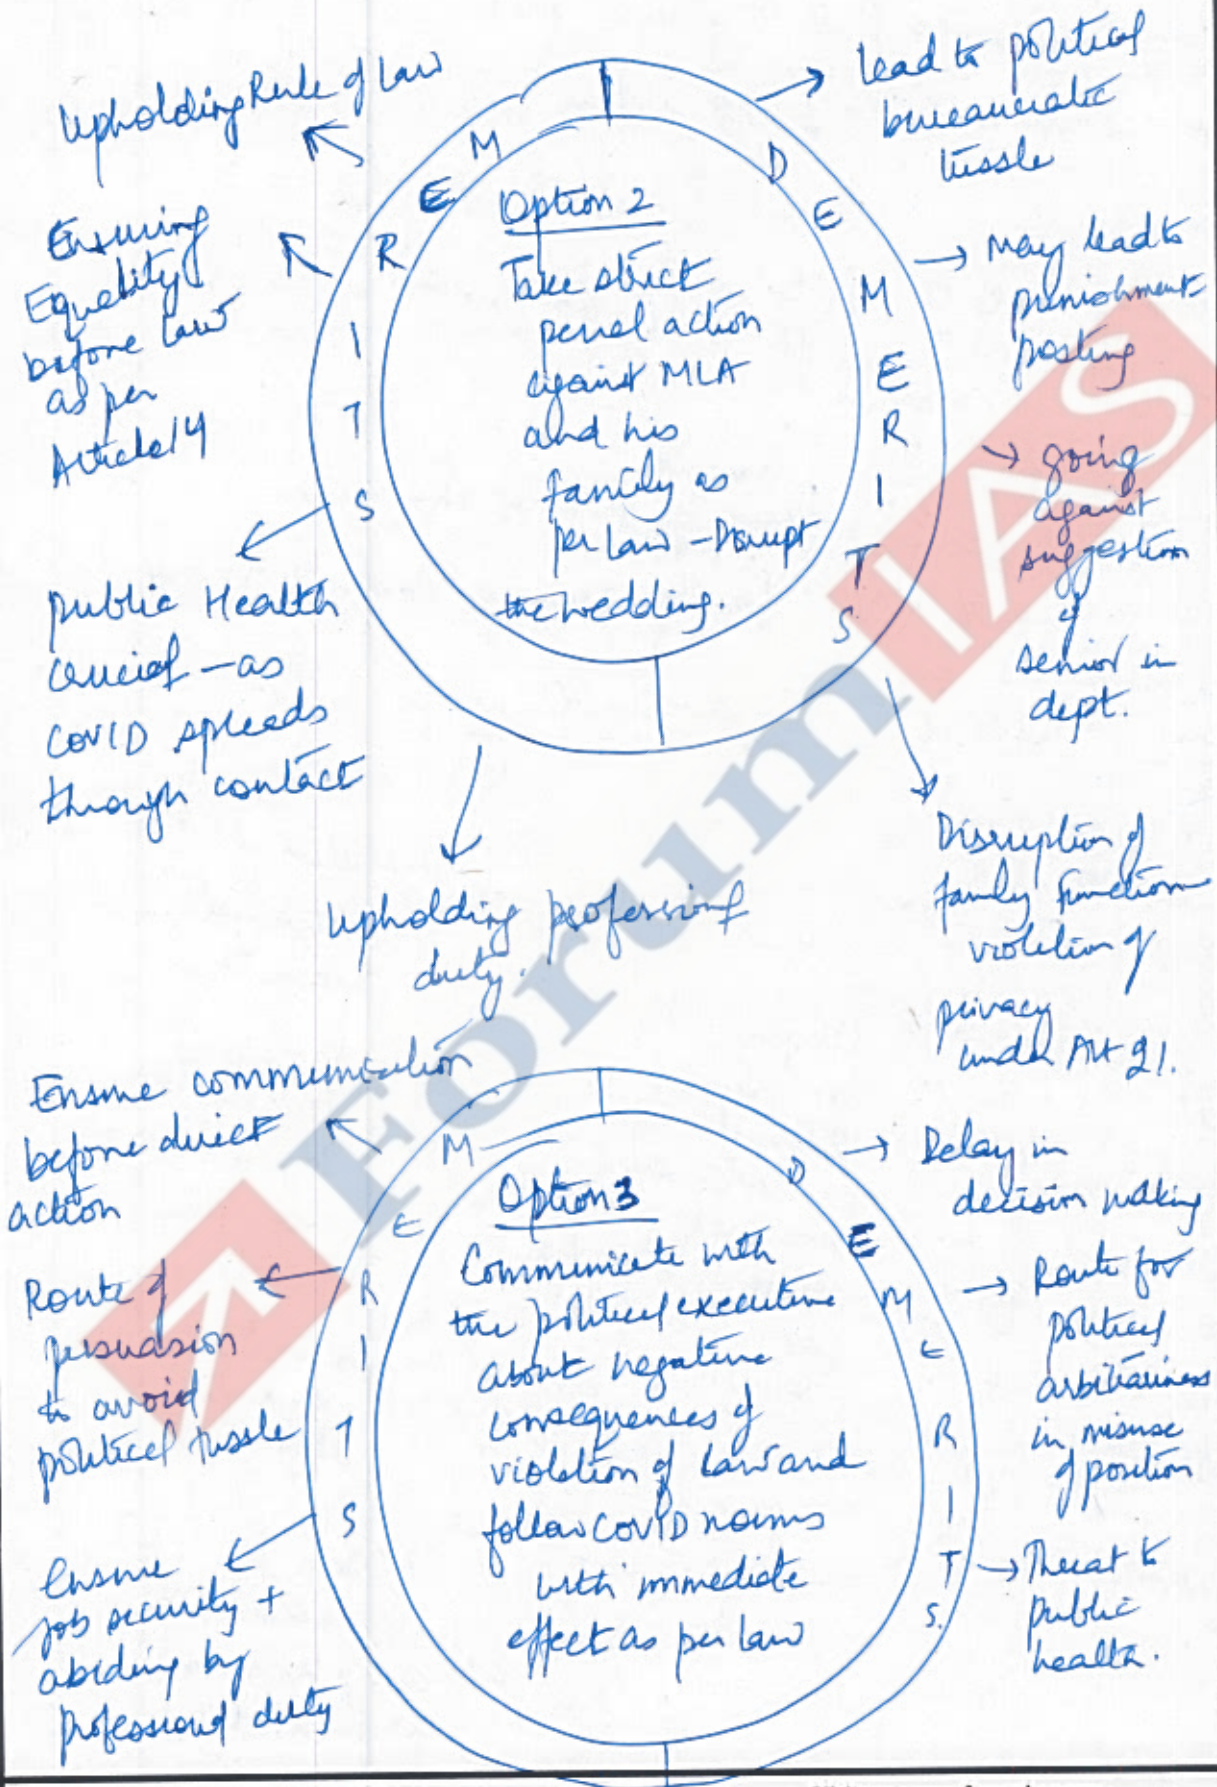 Upholding Rule of Law
Ensuring
Equality
before law
as per
Article 14
public Health
crucial - as
COVID spreads
through contact
Upholding professional
duty.
MERITS
Option 2
Take strict
penal action
against MLA
and his
family as
per law - Disrupt
the wedding.
DEMERITS
lead to political
bureaucratic
tussle
May lead to
punishment
posting
going
against
suggestion
of
senior in
dept.
Disruption of
family function
violation of
privacy
under Art 21.
Ensure communication
before direct
action
Route of
persuasion
to avoid
political tussle
Ensure
job security +
abiding by
professional duty
MERITS
Option 3
Communicate with
the political executive
about negative
consequences of
violation of law and
follow COVID norms
with immediate
effect as per law
DEMERITS
Delay in
decision making
Route for
political
arbitrariness
in misuse
of position
Threat to
public
health.
ForumIAS